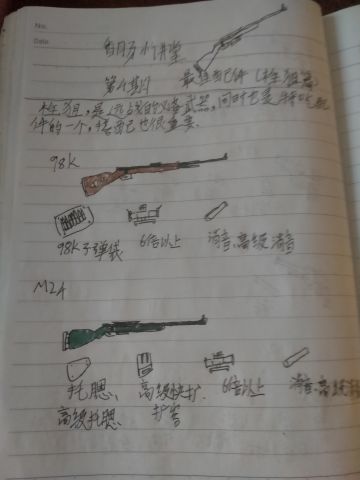 No.
Date
小讲堂
第4期 最强配件（栓狙篇
栓狙，是远战的必备武器，同时也是特吃配
件的一个，搭配也很重要.
98K
98K子弹袋 6倍以上 消音、高级消音
M24
托腮、 高级快扩、 6倍以上 消音、高级消音
高级托腮 扩容